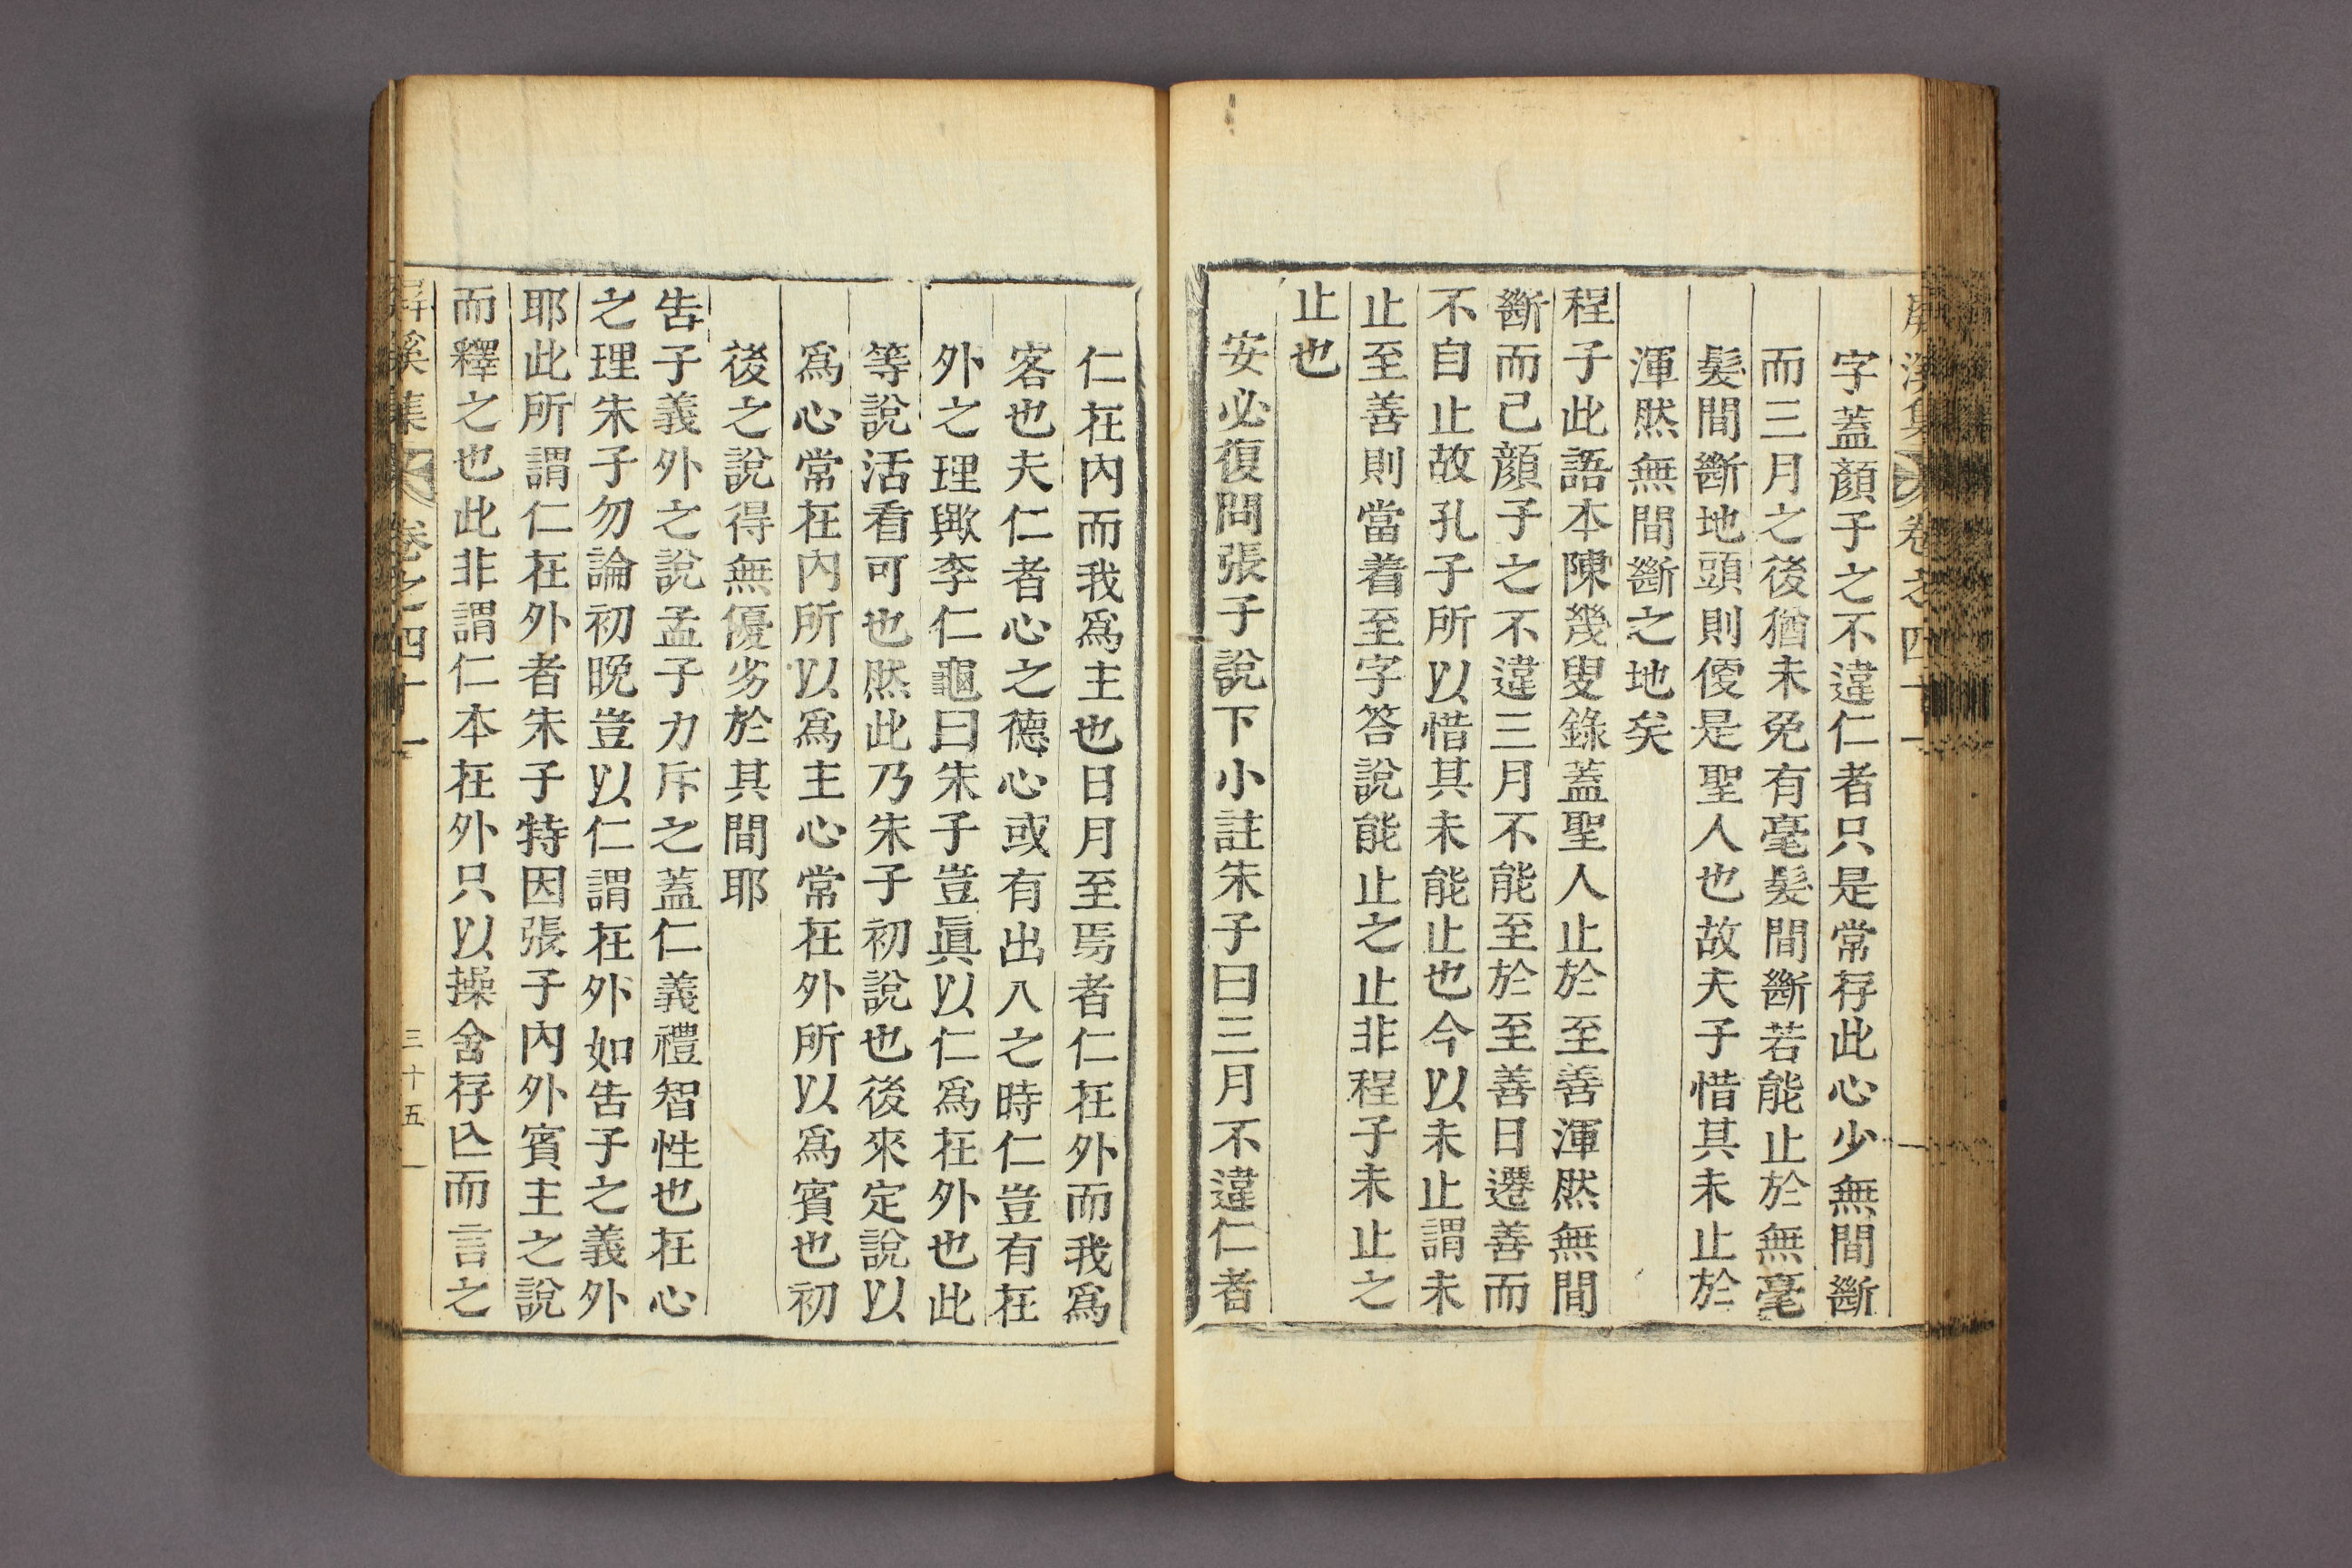 屛溪集 卷之四十一
字蓋顏子之不違仁者只是常存此心少無間斷
而三月之後猶未免有毫髮間斷若能止於無毫
髮間斷地頭則便是聖人也故夫子惜其未止於
渾然無間斷之地矣
程子此語本陳幾叟錄蓋聖人止於至善渾然無間
斷而已顏子之不違三月不能至於至善日遷善而
不自止故孔子所以惜其未能止也今以未止謂未
止至善則當着至字答說能止之止非程子未止之
止也
安必復問張子說下小註朱子曰三月不違仁者
仁在內而我爲主也日月至焉者仁在外而我爲
客也夫仁者心之德心或有出入之時仁豈有在
外之理歟李仁龜曰朱子豈眞以仁爲在外也此
等說活看可也然此乃朱子初說也後來定說以
爲心常在內所以爲主心常在外所以爲賓也初
後之說得無優劣於其間耶
告子義外之說孟子力斥之蓋仁義禮智性也在心
之理朱子勿論初晩豈以仁謂在外如告子之義外
耶此所謂仁在外者朱子特因張子內外賓主之說
而釋之也此非謂仁本在外只以操舍存亾而言之
屛溪集 卷之四十一 三十五